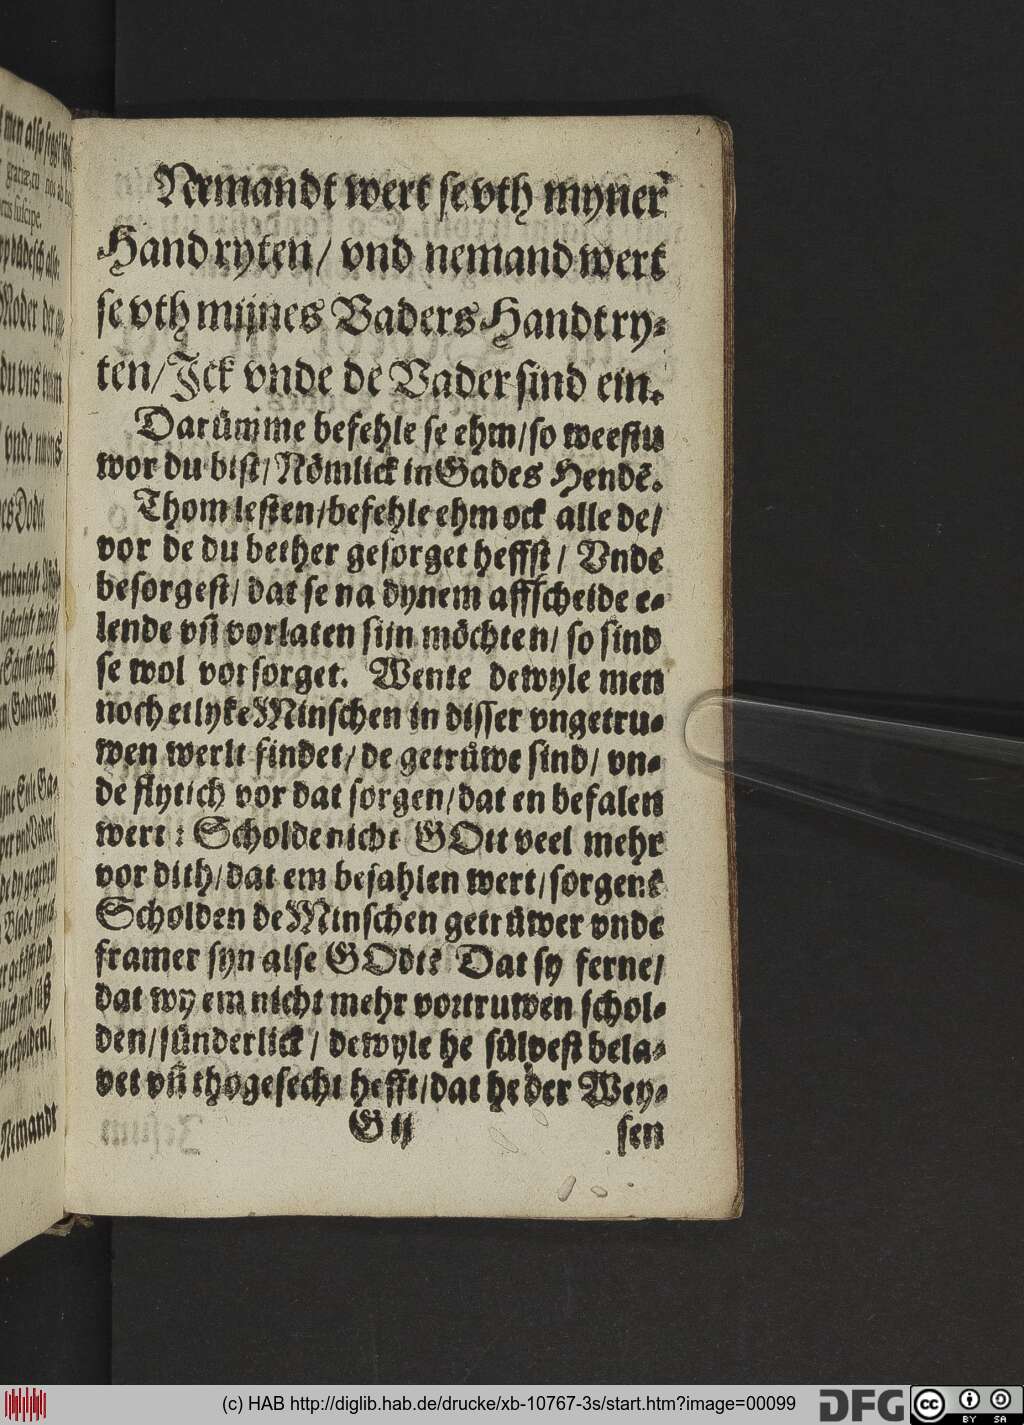 Nemandt wert se vth myner
Hand ryten / vnd nemand wert
se vth mijnes Vaders Handt ry⸗
ten / Jck vnde de Vader sind ein.
Darümme befehle se ehm / so weestu
wor du bist / Nömlick in Gades Hendē.
Thom lesten / befehle ehm ock alle de /
vor de du bether gesorget heffst / Vnde
besorgest / dat se na dynem affscheide e⸗
lende vñ vorlaten sijn möchten / so sind
se wol vorsorget. Wente dewyle men
noch etlyke Minschen in disser vngetru⸗
wen werlt findet / de getrüwe sind / vn⸗
de flytich vor dat sorgen / dat en befalen
wert : Scholde nicht GOtt veel mehr
vor dith / dat em befahlen wert / sorgen?
Scholden de Minschen getrüwer vnde
framer syn alse GOdt? Dat sy ferne /
dat wy em nicht mehr vortruwen schol⸗
den / sünderlick / dewyle he sülvest bela⸗
vet vñ thogesecht hefft / dat he der Wey⸗
G ij
sen
Nemandt
(c) HAB http://diglib.hab.de/drucke/xb-10767-3s/start.htm?image=00099
DFG
cc
BY SA